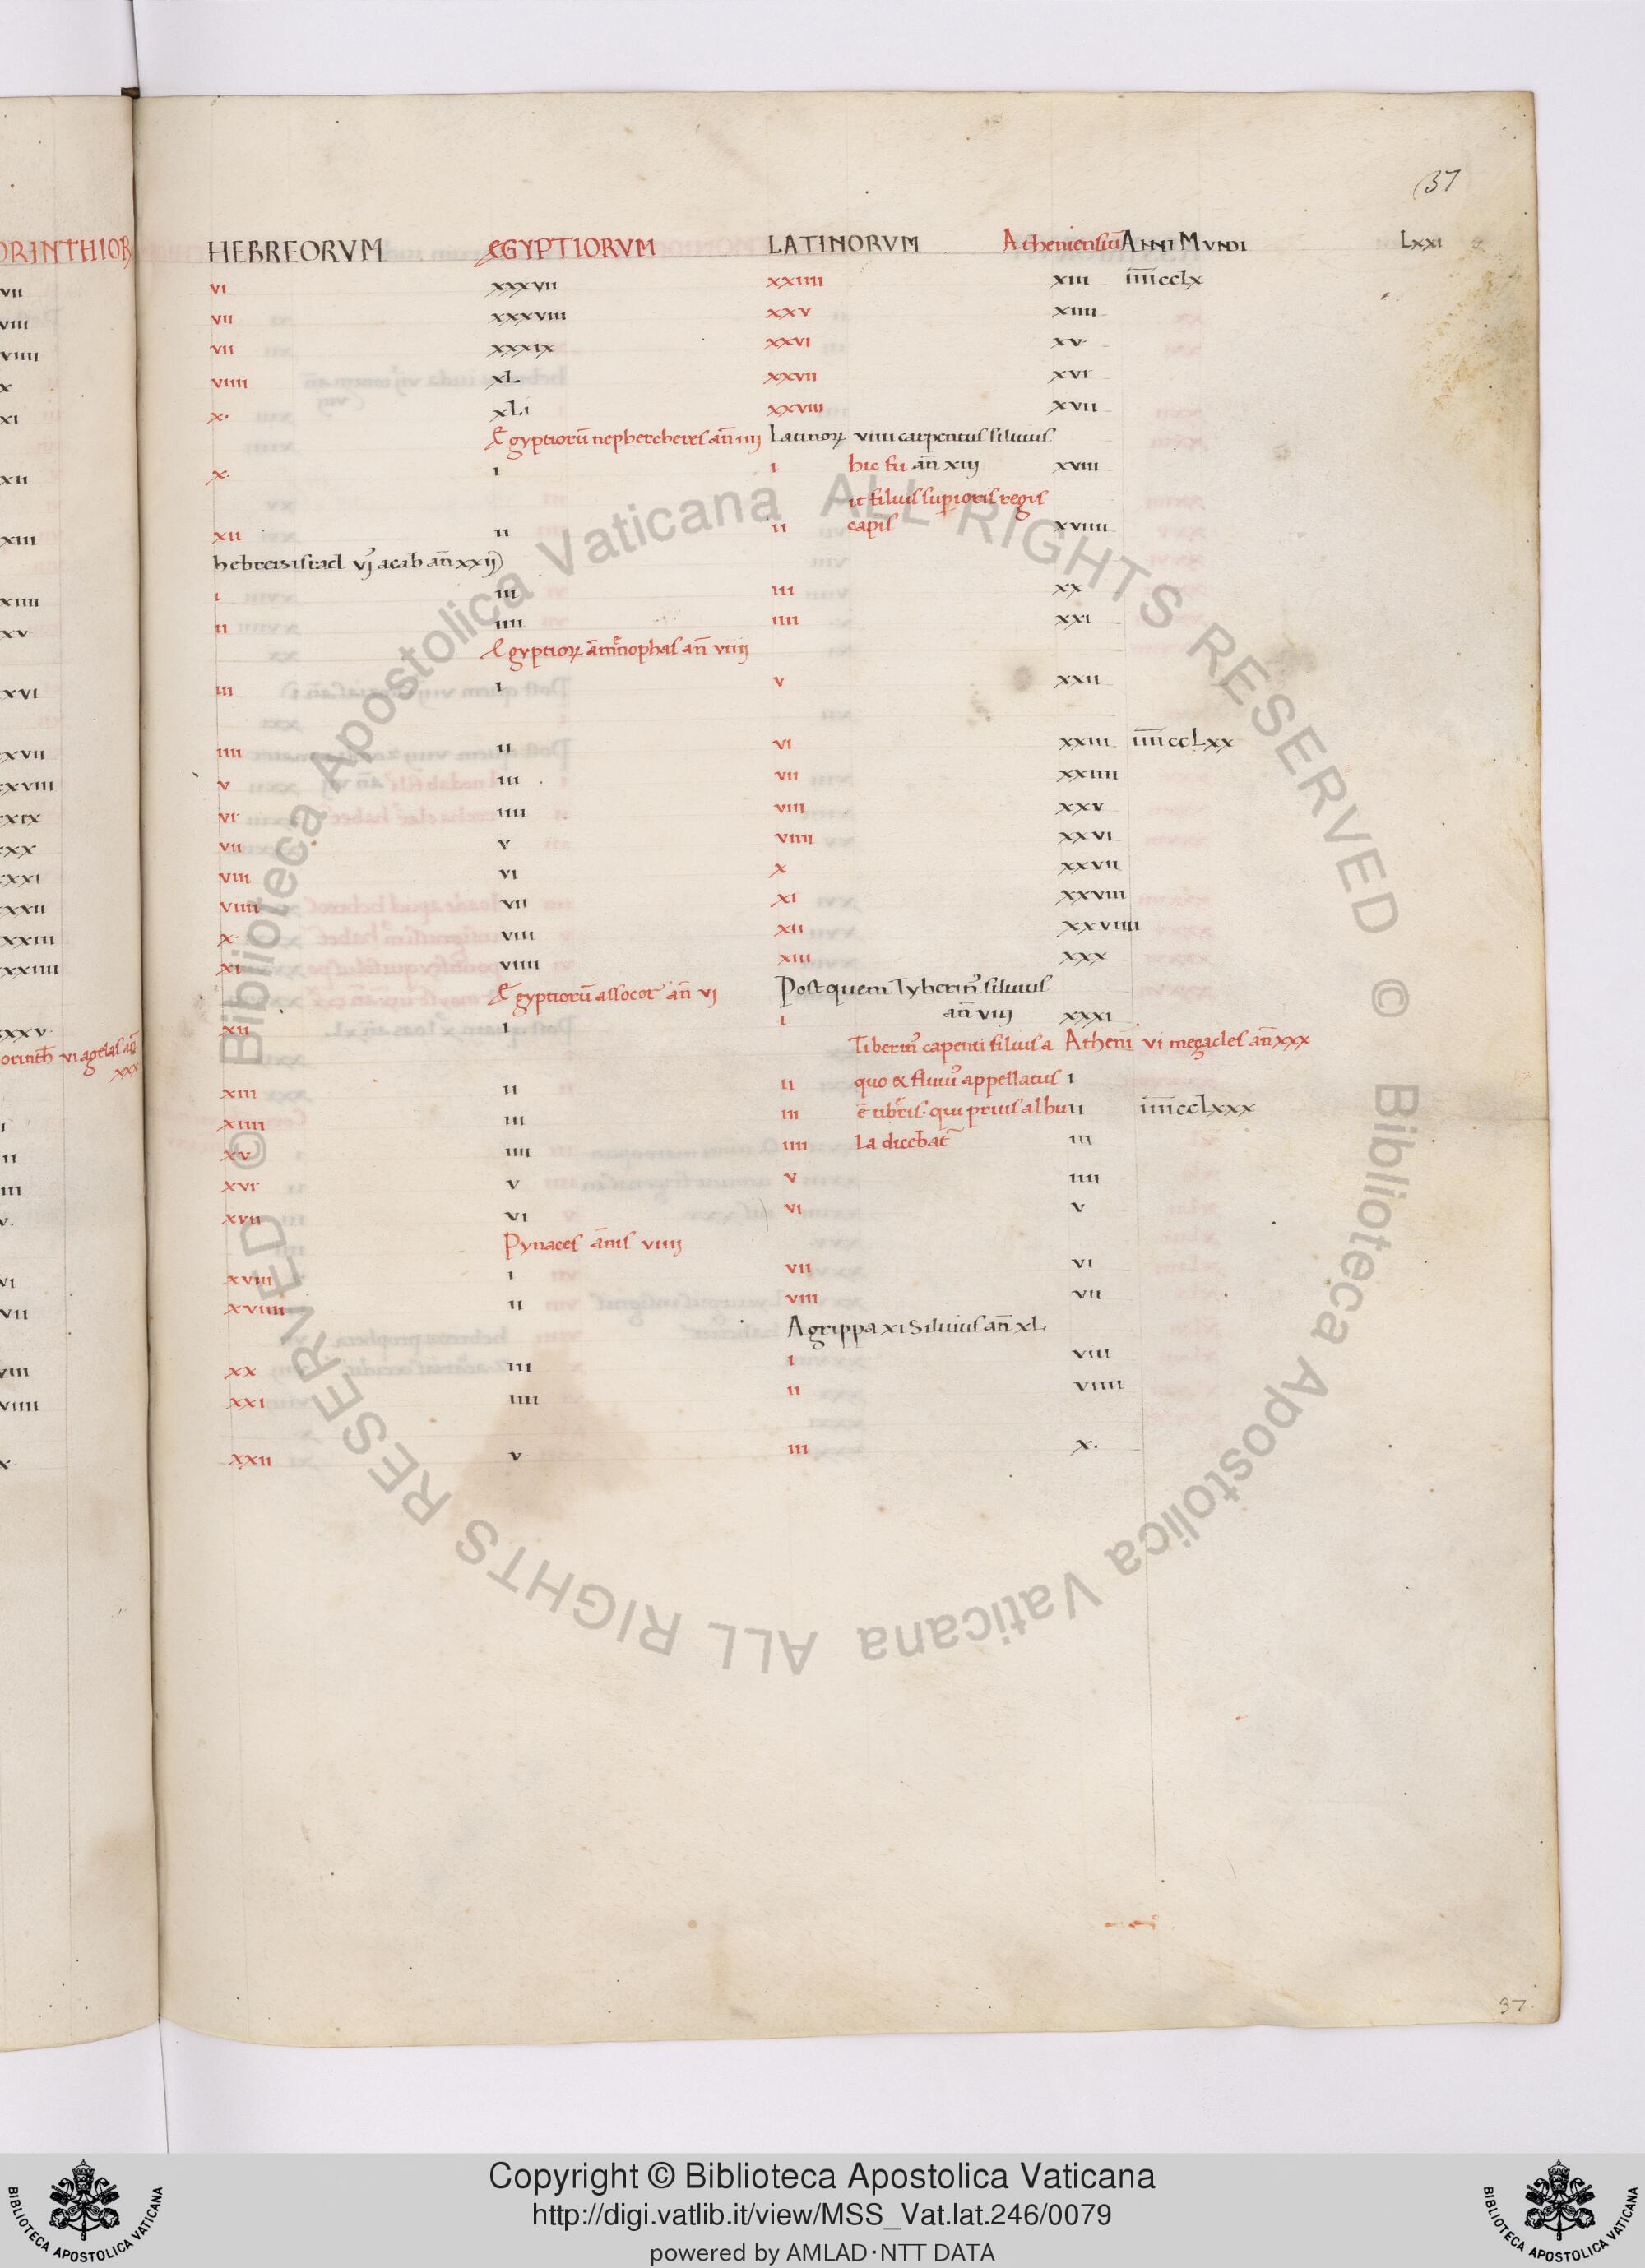 37
ORINTHIOR HEBREORVM ÆGYPTIORVM LATINORVM Atheniensiū ANNI MVNDI Lxxi
vii vi xxxvii xxiiii xiii īīīīcclx
viii vii xxxviii xxv xiiii
viiii vii xxxix xxvi xv
x viiii xL xxvii xvi
xi x· xLi xxviii xvii
Ægyptiorū nephercheres an̄ iiij Latinoꝝ viiii carpentus siluius
xii x· i i hic fu an̄ xiij xviii
it filius superioris regis
xiii xii ii ii capis xviiii
hebreis israel vj acab an̄ xxij
xiiii i iii iii xx
xv ii iiii iiii xxi
Egyptioꝝ am̄nophas an̄ viiij
xvi iii i v xxii
xvii iiii ii vi xxiii īīīīccLxx
xviii v iii vii xxiiii
xix vi iiii viii xxv
xx vii v viiii xxvi
xxi viii vi x xxvii
xxii viiii vii xi xxviii
xxiii x· viii xii xxviiii
xxiiii xi viiii xiii xxx
Ægyptiorū assocor an̄ vj Post quem Tyberin' siluius
an̄ viij
xxv xii i i xxxi
orinth̄ vi agelas an̄ xxx Tiberin' capenti filius a Athenī vi megacles an̄ xxx
xiii ii ii quo ex fluui' appellatus i
i xiiii iii iii ē tibris· qui prius albu ii īīīīcclxxx
ii xv iiii iiii la diceb̄at̄ iii
iii xvi v v iiii
v. xvii vi vi v
Pynaces an̄is viiij
vi xviii i vii vi
vii xviiii ii viii vii
Agrippa xi Siluius an̄ xL
viii xx iii i viii
viiii xxi iiii ii viiii
x xxii v· iii x·
37
© Biblioteca Apostolica Vaticana ALL RIGHTS RESERVED © Biblioteca Apostolica Vaticana ALL RIGHTS RESERVED
Copyright © Biblioteca Apostolica Vaticana
http://digi.vatlib.it/view/MSS_Vat.lat.246/0079
powered by AMLAD·NTT DATA
BIBLIOTECA APOSTOLICA VATICANA
BIBLIOTECA APOSTOLICA VATICANA